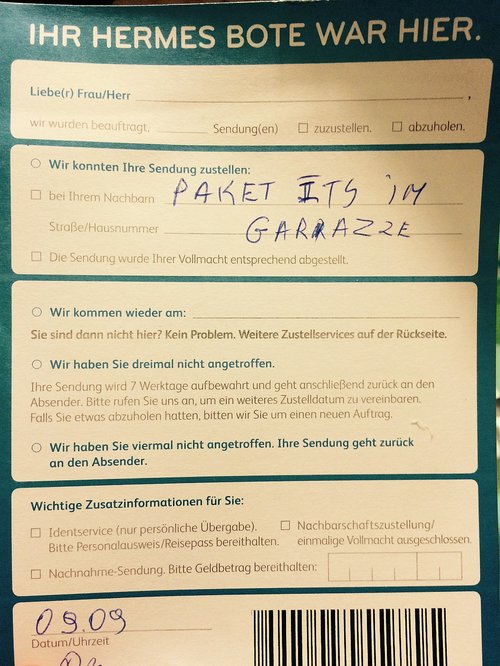 IHR HERMES BOTE WAR HIER.
Liebe(r) Frau/Herr ,
wir wurden beauftragt, Sendung(en) zuzustellen. abzuholen.
Wir konnten Ihre Sendung zustellen:
bei Ihrem Nachbarn PAKET ITS iM
Straße/Hausnummer GARRAZZE
Die Sendung wurde Ihrer Vollmacht entsprechend abgestellt.
Wir kommen wieder am:
Sie sind dann nicht hier? Kein Problem. Weitere Zustellservices auf der Rückseite.
Wir haben Sie dreimal nicht angetroffen.
Ihre Sendung wird 7 Werktage aufbewahrt und geht anschließend zurück an den
Absender. Bitte rufen Sie uns an, um ein weiteres Zustelldatum zu vereinbaren.
Falls Sie etwas abzuholen hatten, bitten wir Sie um einen neuen Auftrag.
Wir haben Sie viermal nicht angetroffen. Ihre Sendung geht zurück
an den Absender.
Wichtige Zusatzinformationen für Sie:
Identservice (nur persönliche Übergabe). Nachbarschaftszustellung/
Bitte Personalausweis/Reisepass bereithalten. einmalige Vollmacht ausgeschlossen.
Nachnahme-Sendung. Bitte Geldbetrag bereithalten:
09.09
Datum/Uhrzeit